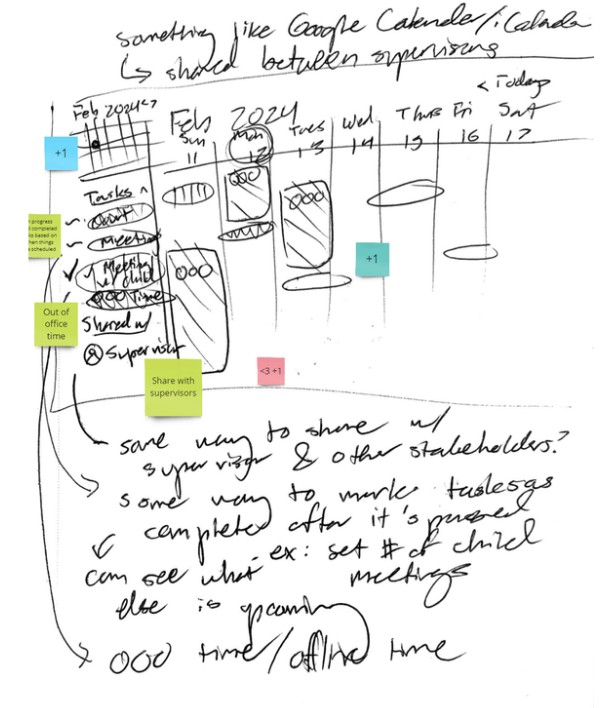 something like Google Calender/iCalender
↳ shared between supervisors
< Today
Feb 2024 <>
Feb 2024
Sun Mon Tues Wed Thurs Fri Sat
11 12 13 14 15 16 17
+1
Tasks ^
OOO
Meeting
progress
completed
based on
when things
scheduled
✓ Meeting
w/ child
OOO Time
OOO
OOO
+1
Out of
office
time
Shared w/
Supervisor
Share with
supervisors
<3 +1
some way to share w/
supervisor & other stakeholders?
some way to mark tasks as
completed after it's passed
ex: set # of child
meetings
can see what
else is upcoming
OOO time/offline time